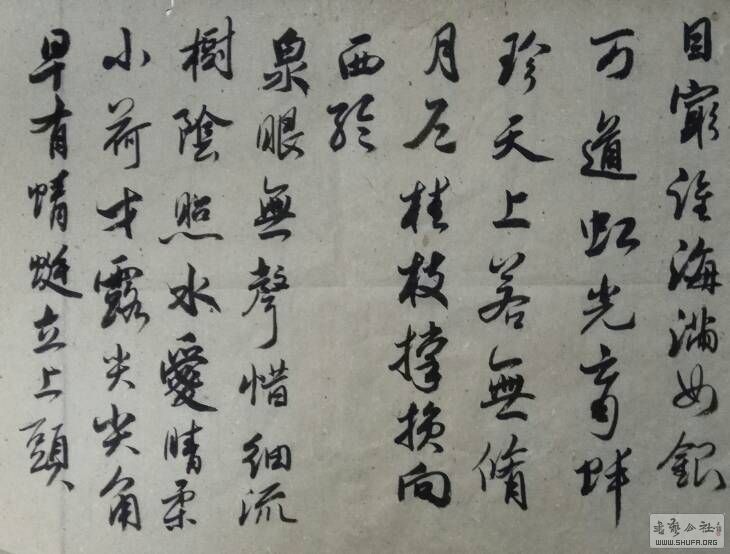 目窮淮海滿如銀
万道虹光育蚌
珍天上若無脩
月户桂枝撐損向
西輪
泉眼無聲惜細流
樹陰照水愛晴柔
小荷才露尖尖角
早有蜻蜓立上頭
书艺公社
WWW.SHUFA.ORG